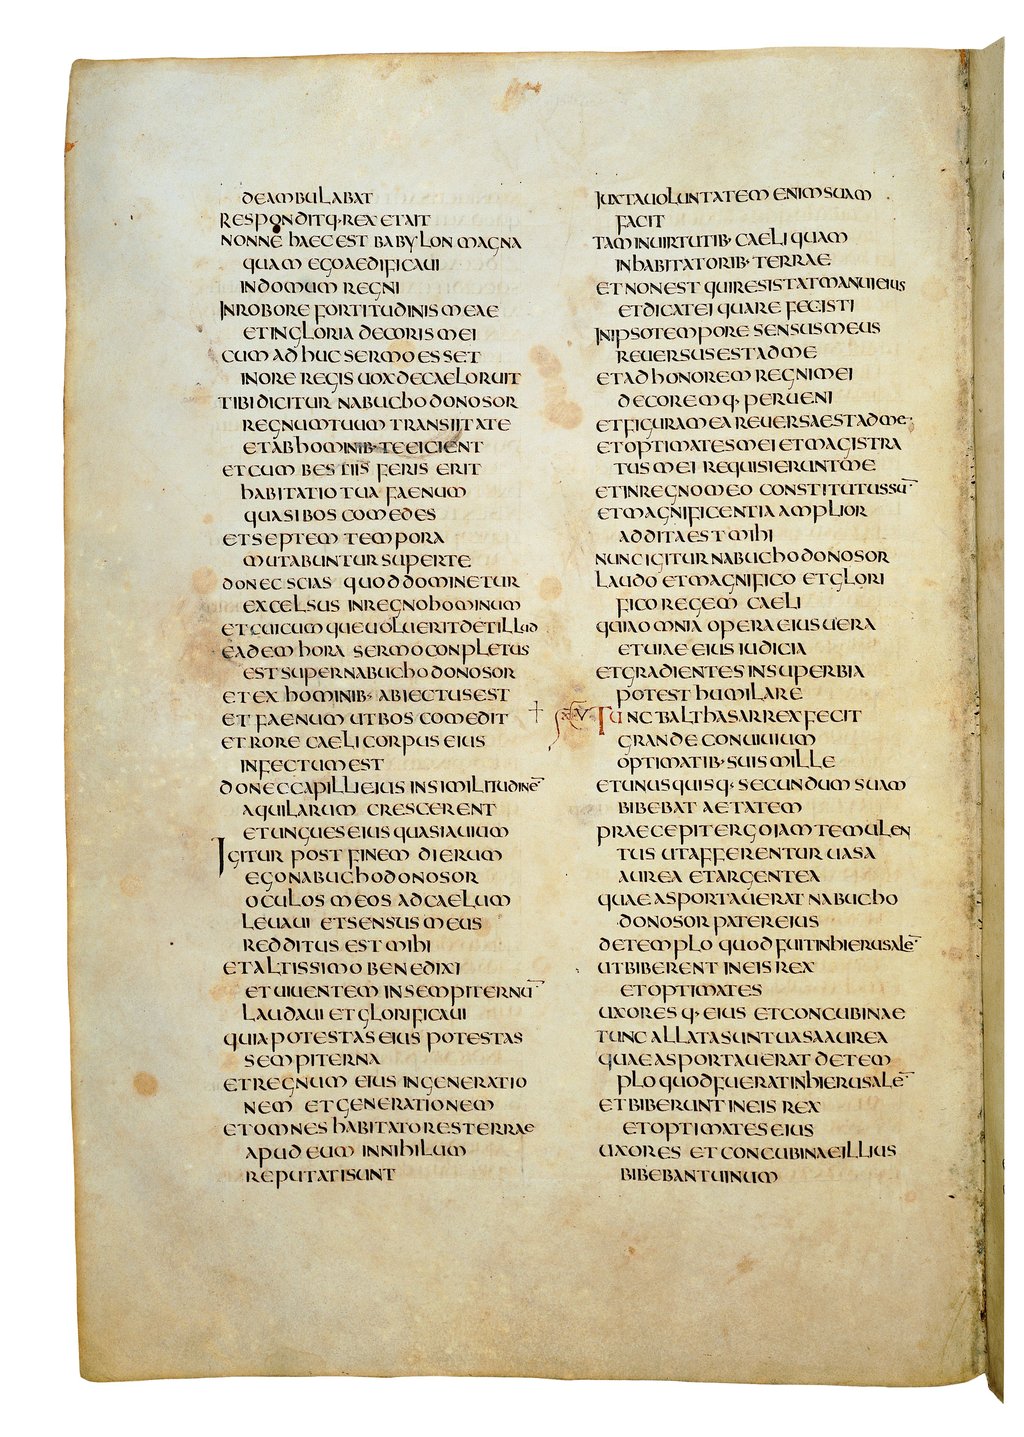 DEAMBULABAT
RESPONDITQ· REX ETAIT
NONNE HAEC EST BABYLON MAGNA
QUAM EGO AEDIFICAUI
IN DOMUM REGNI
IN ROBORE FORTITUDINIS MEAE
ET IN GLORIA DECORIS MEI
CUM AD HUC SERMO ESSET
IN ORE REGIS UOX DE CAELO RUIT
TIBI DICITUR NABUCHODONOSOR
REGNUM TUUM TRANSIITATE
ET AB HOMINIB· TE EICIENT
ET CUM BESTIIS FERIS ERIT
HABITATIO TUA FAENUM
QUASI BOS COMEDES
ET SEPTEM TEMPORA
MUTABUNTUR SUPER TE
DONEC SCIAS QUOD DOMINETUR
EXCELSUS IN REGNO HOMINUM
ET CUICUMQUE UOLUERIT DET ILLUD
EADEM HORA SERMO CONPLETUS
EST SUPER NABUCHODONOSOR
ET EX HOMINIB· ABIECTUS EST
ET FAENUM UT BOS COMEDIT
ET RORE CAELI CORPUS EIUS
INFECTUM EST
DONEC CAPILLI EIUS IN SIMILITUDINĒ
AQUILARUM CRESCERENT
ET UNGUES EIUS QUASI AUIUM
IGITUR POST FINEM DIERUM
EGO NABUCHODONOSOR
OCULOS MEOS AD CAELUM
LEUAUI ET SENSUS MEUS
REDDITUS EST MIHI
ET ALTISSIMO BENEDIXI
ET UIUENTEM IN SEMPITERNŪ
LAUDAUI ET GLORIFICAUI
QUIA POTESTAS EIUS POTESTAS
SEMPITERNA
ET REGNUM EIUS IN GENERATIO
NEM ET GENERATIONEM
ET OMNES HABITATORES TERRAE
APUD EUM IN NIHILUM
REPUTATI SUNT
IUXTA UOLUNTATEM ENIM SUAM
FACIT
TAM IN UIRTUTIB· CAELI QUAM
IN HABITATORIB· TERRAE
ET NON EST QUI RESISTAT MANUI EIUS
ET DICAT EI QUARE FECISTI
IN IPSO TEMPORE SENSUS MEUS
REUERSUS EST AD ME
ET AD HONOREM REGNI MEI
DECOREMQ· PERUENI
ET FIGURA MEA REUERSA EST AD ME·
ET OPTIMATES MEI ET MAGISTRA
TUS MEI REQUISIERUNT ME
ET IN REGNO MEO CONSTITUTUS SŪ
ET MAGNIFICENTIA AMPLIOR
ADDITA EST MIHI
NUNC IGITUR NABUCHODONOSOR
LAUDO ET MAGNIFICO ET GLORI
FICO REGEM CAELI
QUIA OMNIA OPERA EIUS UERA
ET UIAE EIUS IUDICIA
ET GRADIENTES IN SUPERBIA
POTEST HUMILARE
XV TUNC BALTHASAR REX FECIT
GRANDE CONUIUIUM
OPTIMATIB· SUIS MILLE
ET UNUSQUISQ· SECUNDUM SUAM
BIBEBAT AETATEM
PRAECEPIT ERGO IAM TEMULEN
TUS UT AFFERENTUR UASA
AUREA ET ARGENTEA
QUAE ASPORTAUERAT NABUCHO
DONOSOR PATER EIUS
DE TEMPLO QUOD FUIT IN HIERUSALĒ
UT BIBERENT IN EIS REX
ET OPTIMATES
UXORESQ· EIUS ET CONCUBINAE
TUNC ALLATA SUNT UASA AUREA
QUAE ASPORTAUERAT DE TEM
PLO QUOD FUERAT IN HIERUSALĒ
ET BIBERUNT IN EIS REX
ET OPTIMATES EIUS
UXORES ET CONCUBINAE ILLIUS
BIBEBANT UINUM